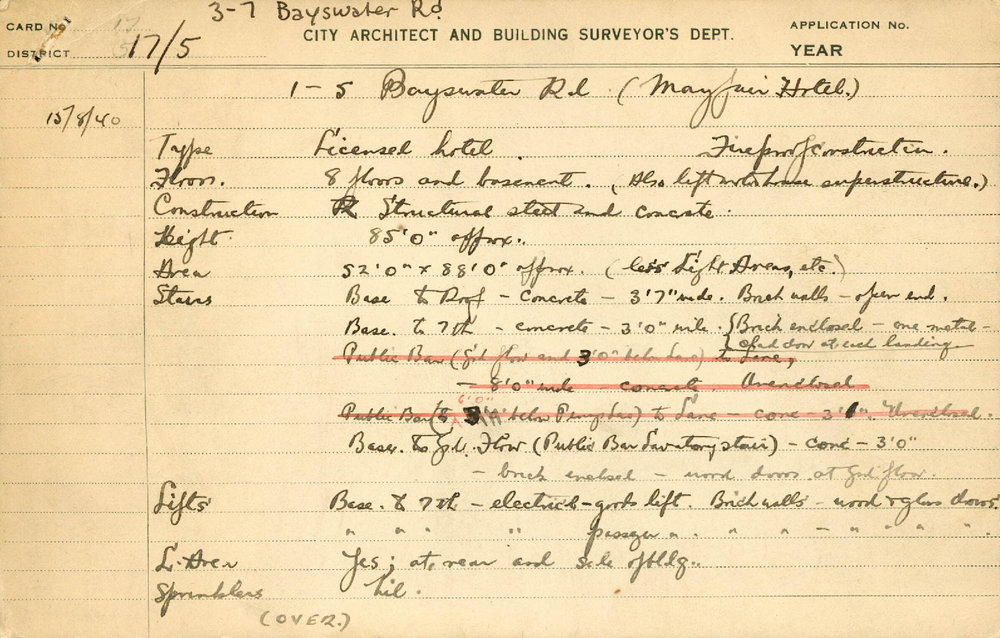 3-7 Bayswater Rd.
CARD No. 17
CITY ARCHITECT AND BUILDING SURVEYOR'S DEPT.
APPLICATION No.
DISTRICT 17/5
YEAR
1-5 Bayswater Rd. (Mayfair Hotel.)
15/8/40
Type Licensed hotel. Fireproof construction.
Floors. 8 floors and basement. (Also lift motor house superstructure.)
Construction Structural steel and concrete.
Height 85'0" approx.
Area 52'0" x 88'0" approx. (less Light Areas, etc.)
Stairs Base to Roof - concrete - 3'7" wide. Brick walls - open end.
Base. to 7th - concrete - 3'0" wide. {Brick enclosed - one metal-
clad door at each landing
Public Bar (Grd floor and 3'0" below Lane) to Lane,
- 8'0" wide - concrete. Unenclosed
Public Bar ( 6'0" below ) to Lane - conc - 3'1". Unenclosed.
Base. to Grd. Floor (Public Bar Lavatory stair) - conc - 3'0"
- brick enclosed - wood doors at Grd floor.
Lifts Base. to 7th - electric - goods lift. Brick walls - wood & glass doors.
" " " " passenger " . " " - " " " " .
L. Area Yes; at rear and side of bldg.
Sprinklers Nil.
(OVER.)